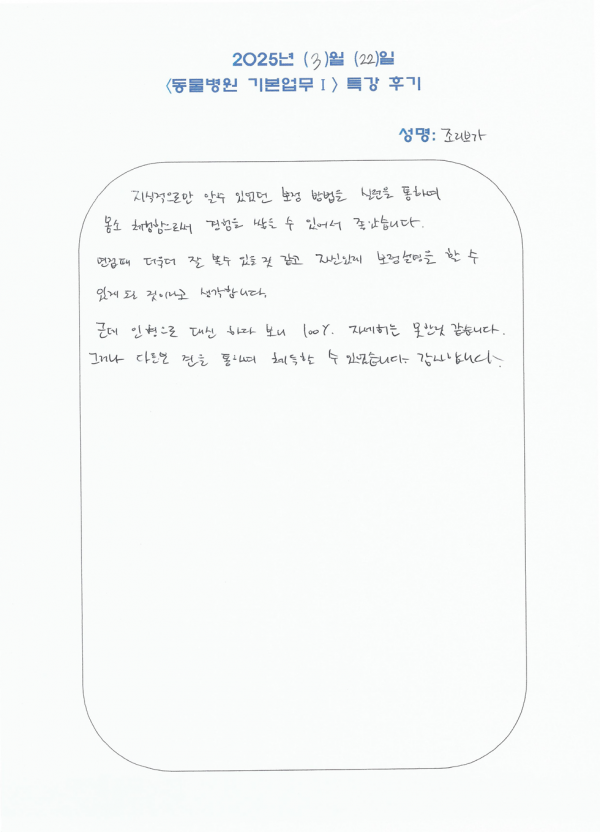 2025년 (3)월 (22)일
<동물병원 기본업무 I> 특강 후기
성명: 조리브가
지식적으로만 알수 있었던 보정 방법을 실현을 통하여
몸소 체험함으로써 경험을 쌓을 수 있어서 좋았습니다.
면접때 더욱더 잘 볼수 있을 것 같고 자신있게 보정설명을 할 수
있게 될 것이라고 생각합니다.
근데 인형으로 대신 하다 보니 100% 자세히는 못한것 같습니다.
그러나 다음번 견을 통하여 체득할 수 있겠습니다~ 감사합니다~